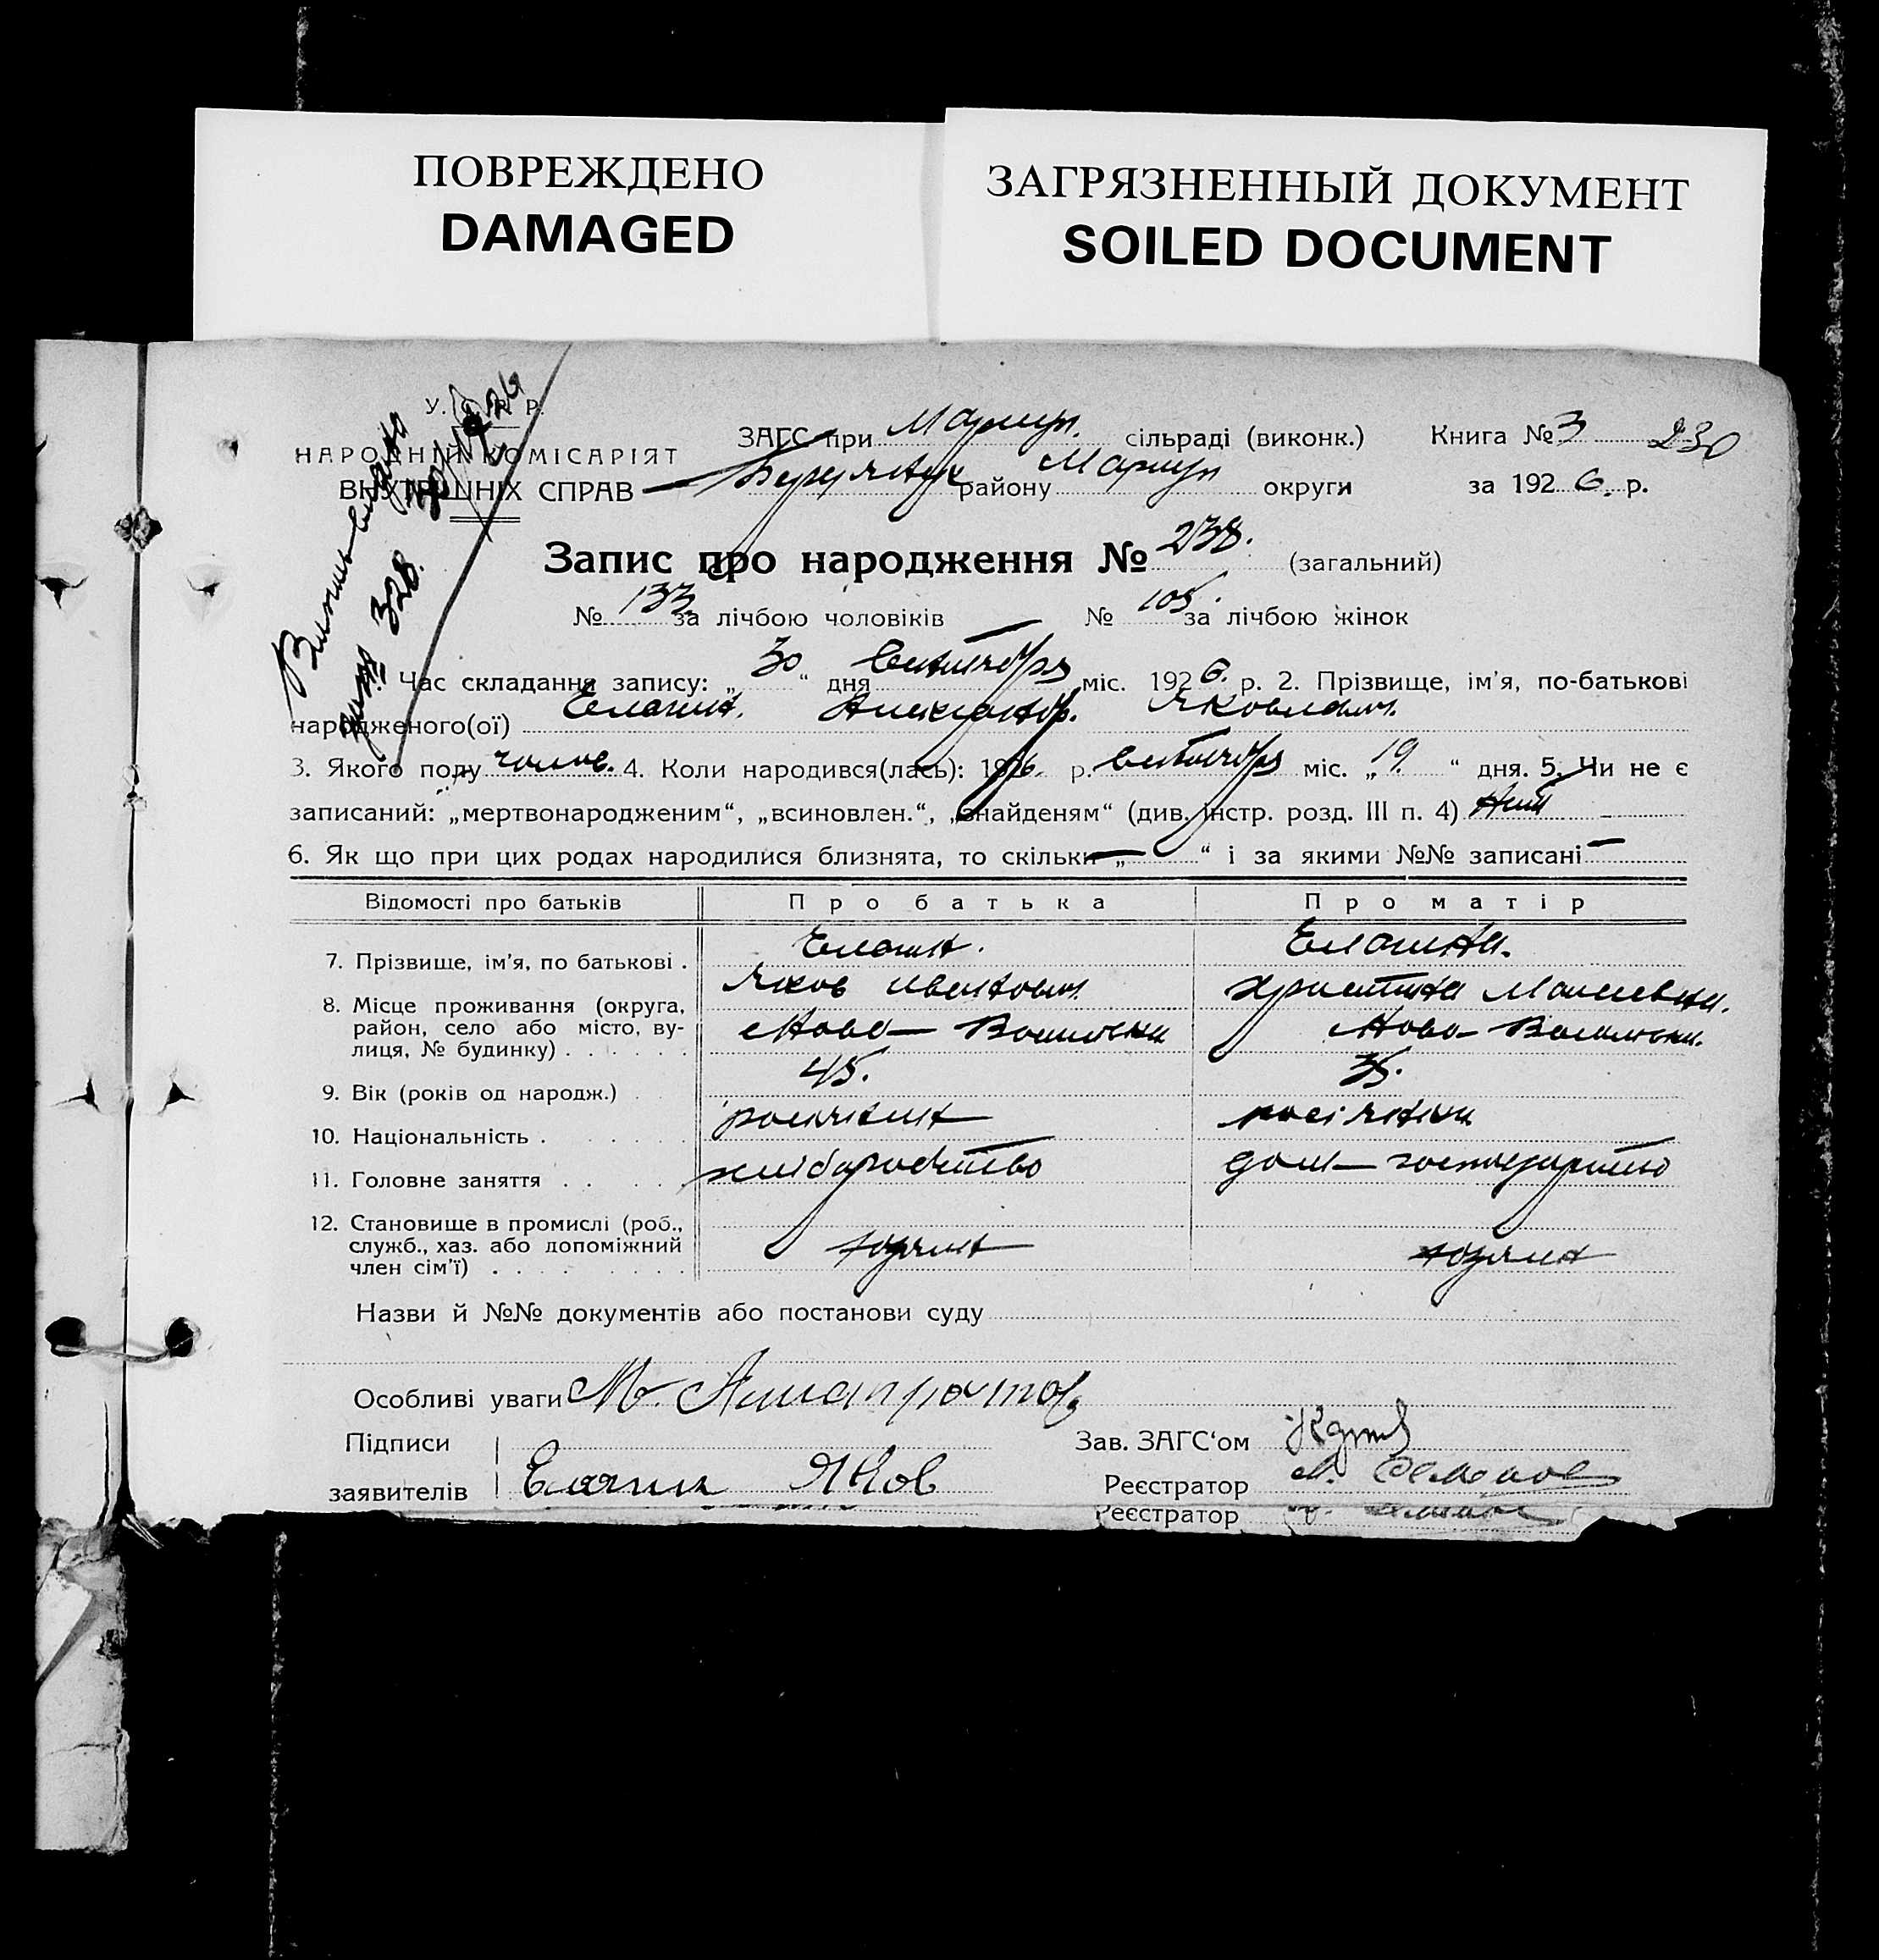 ПОВРЕЖДЕНО
DAMAGED
ЗАГРЯЗНЕННЫЙ ДОКУМЕНТ
SOILED DOCUMENT
У. С. Р. Р.
НАРОДНІЙ КОМІСАРІЯТ
ВНУТРІШНІХ СПРАВ
328.
ЗАГС при Мариуп. сільраді (виконк.) Книга № 3 230
району Мариуп округи за 1926. р.
Запис про народження № 238. (загальний)
№ 133 за лічбою чоловіків № 105. за лічбою жінок
Час складання запису: „30“ дня Сентября міс. 1926. р. 2. Прізвище, ім’я, по-батькові
народженого(ої) Елагин. Александр. Яковлевич.
3. Якого полу чолов. 4. Коли народився(лась): 1926 р. Сентября міс. „19.“ дня. 5. Чи не є
записаний: „мертвонародженим“, „всиновлен.“, „знайденям“ (див. інстр. розд. III п. 4) Нит
6. Як що при цих родах народилися близнята, то скільки — „ “ і за якими №№ записані —
Відомості про батьків Про батька Про матір
7. Прізвище, ім’я, по батькові . Елагин. Елагина.
Яков Иванович. Христина Моисеевна.
8. Місце проживання (округа, район, село або місто, вулиця, № будинку) . . . . . .
Ново— Ново—
9. Вік (років од народж.) . 45. 35.
10. Національність . росіянин росіянка
11. Головне заняття . . хліборобство дом— господарство
12. Становище в промислі (роб., служб., хаз. або допоміжний член сім’ї) . . .
хозяин хозяин
Назви й №№ документів або постанови суду
Особливі уваги
Підписи
заявителів Елагин Яков
Зав. ЗАГС‘ом
Реєстратор
Реєстратор